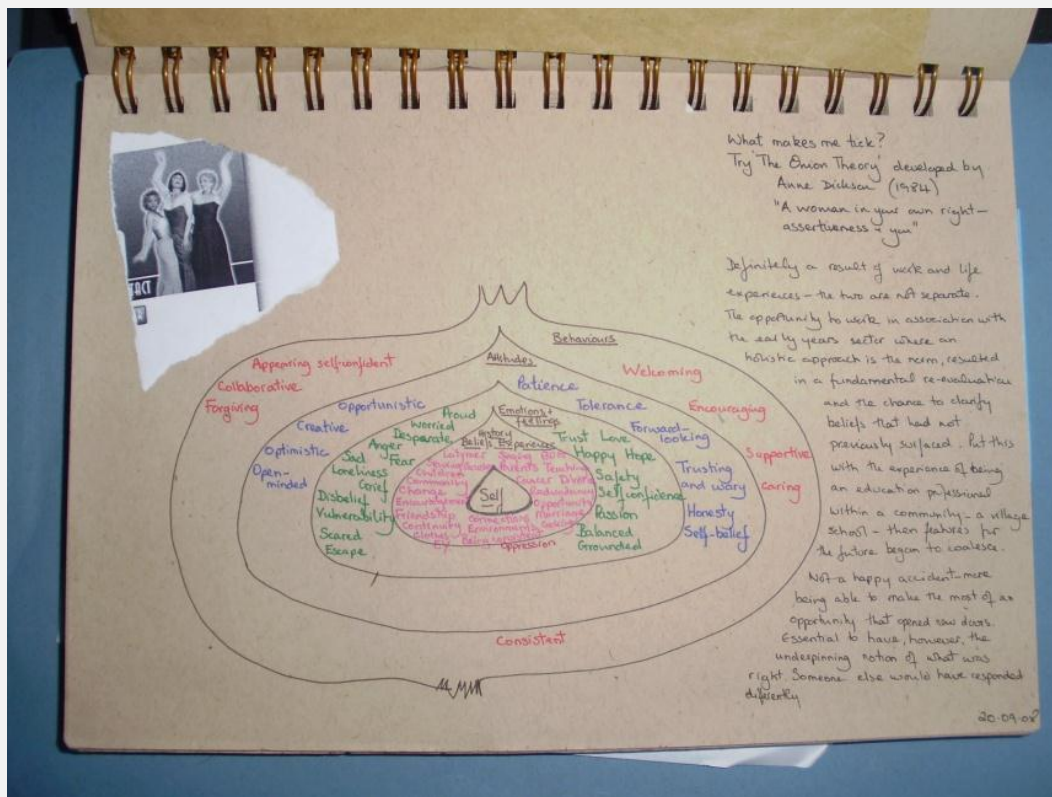 FACT
What makes me tick?
Try 'The Onion Theory' developed by
Anne Dickson (1984)
"A woman in your own right –
assertiveness + you"
Definitely a result of work and life
experiences – the two are not separate.
The opportunity to work in association with
the early years sector where an
holistic approach is the norm, resulted
in a fundamental re-evaluation
and the chance to clarify
beliefs that had not
previously surfaced. Put this
with the experience of being
an education professional
within a community – a village
school – then features for
the future began to coalesce.
Not a happy accident – more
being able to make the most of an
opportunity that opened new doors.
Essential to have, however, the
underpinning notion of what was
right. Someone else would have responded
differently
20-09-08
Behaviours
Appearing self-confident
Collaborative
Forgiving
Welcoming
Encouraging
Supportive
Caring
Consistent
Attitudes
Patience
Opportunistic
Creative
Optimistic
Open-
minded
Tolerance
Forward-
looking
Trusting
and wary
Honesty
Self-belief
Emotions +
feelings
Proud
Worried
Desperate
Anger
Fear
Sad
Loneliness
Grief
Disbelief
Vulnerability
Scared
Escape
Trust Love
Happy Hope
Safety
Self confidence
Passion
Balanced
Grounded
History
Beliefs Experiences
Latymer Singing
Parents Teaching
Children
Community
Cancer Divorce
Change
Redundancy
Opportunity
Friendship
Marriage
Continuity
Connections
Environment
Clothes
Being
Oppression
Self